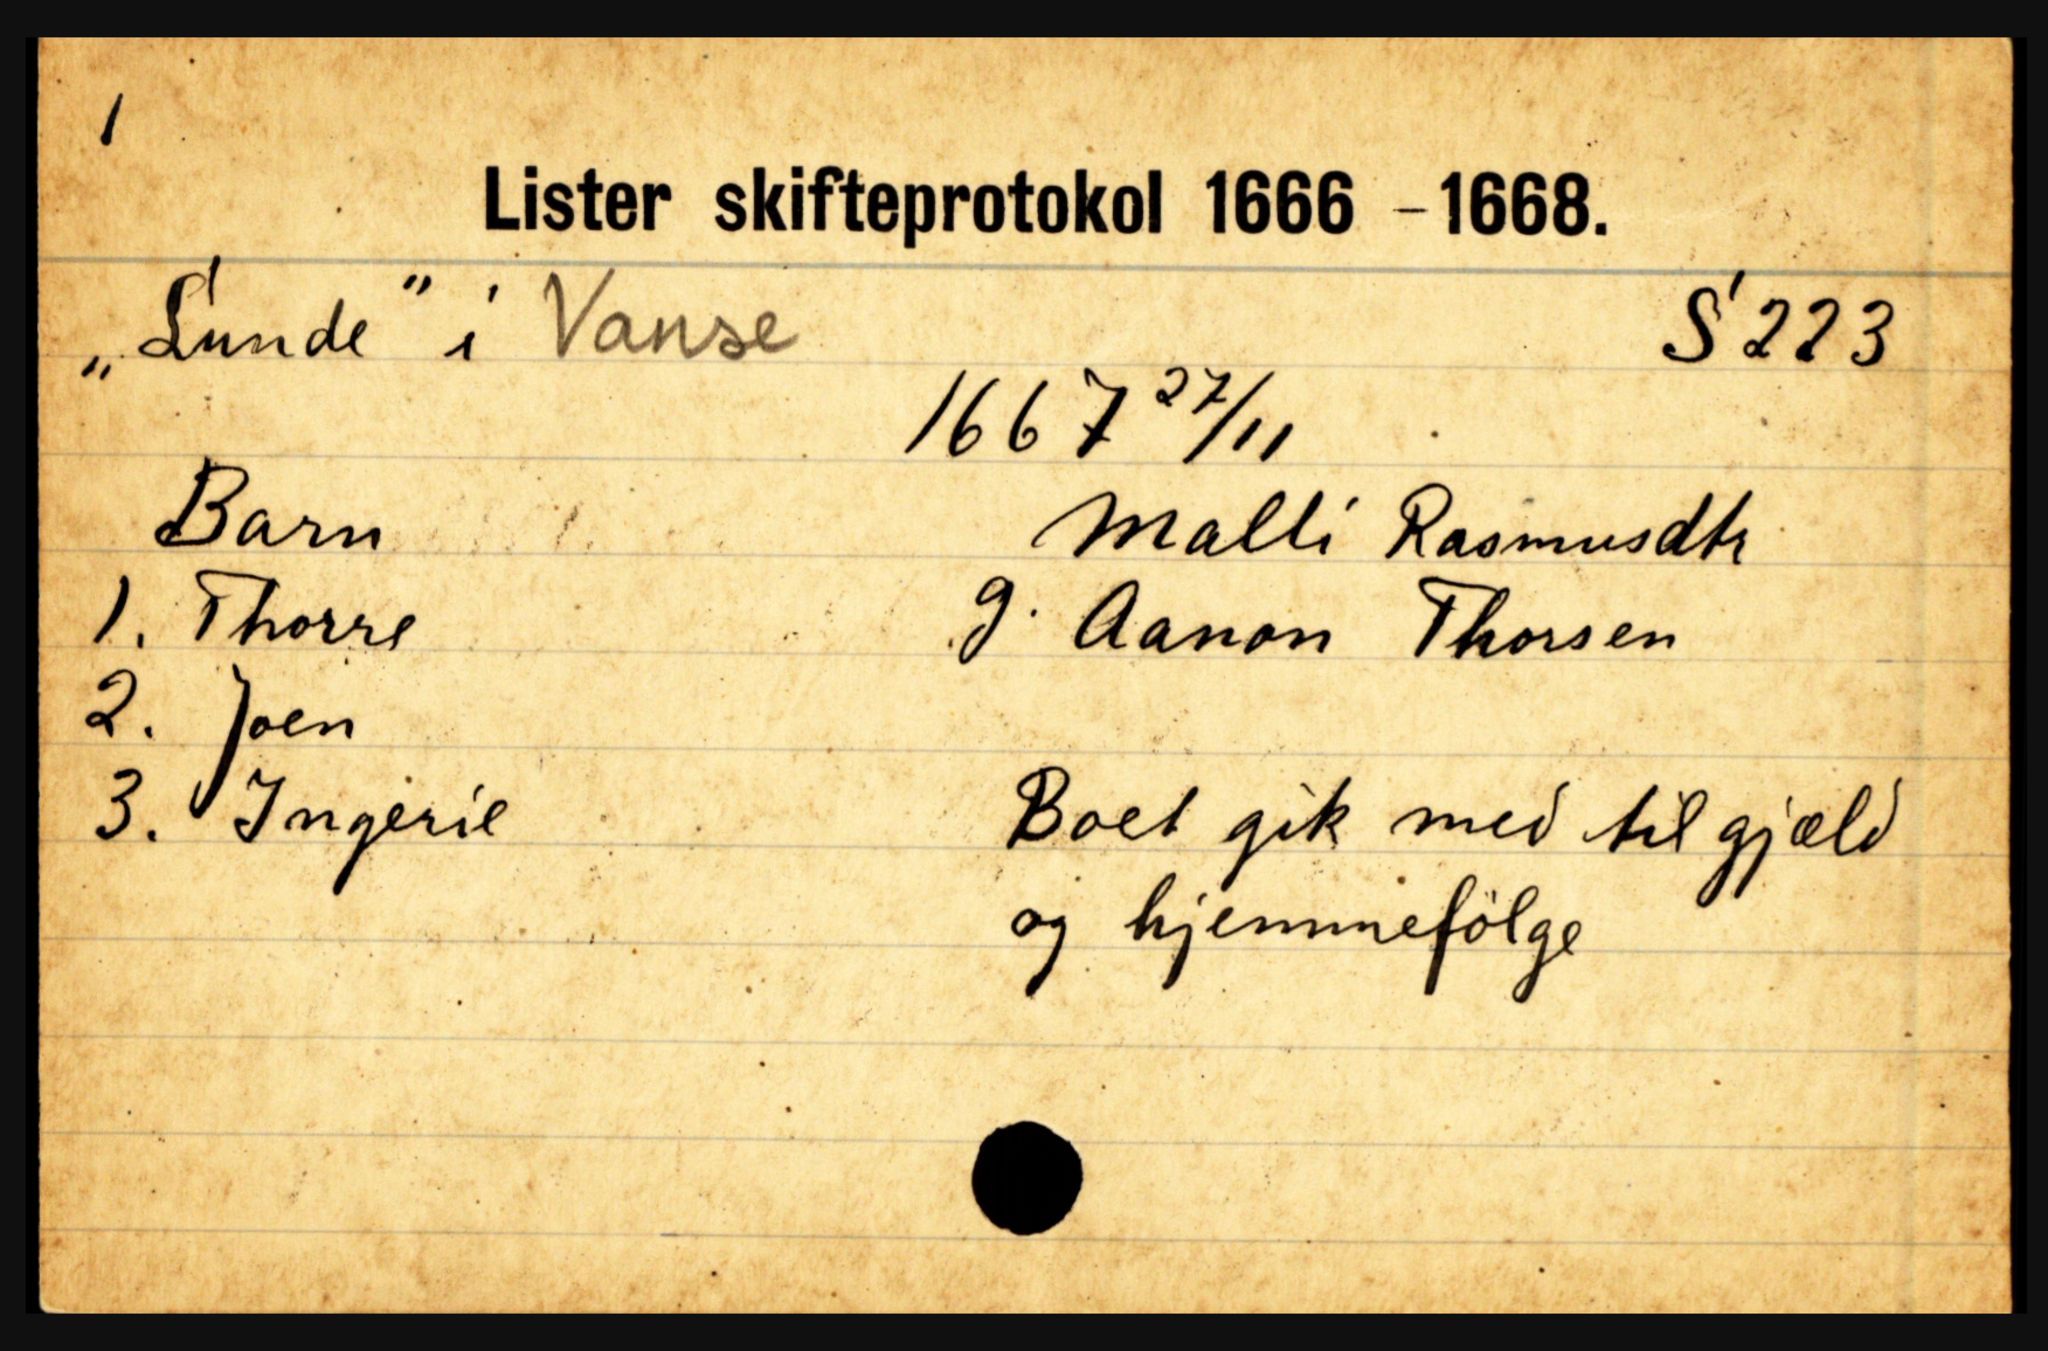 1
Lister skifteprotokol 1666 - 1668.
„Lunde" i Vanse S 223
1667 27/11
Barn Malli Rasmusdtr
1. Thorre g. Aanon Thorsen
2. Joen
3. Ingerie Boet gik med til gjæld
og hjemmefölge